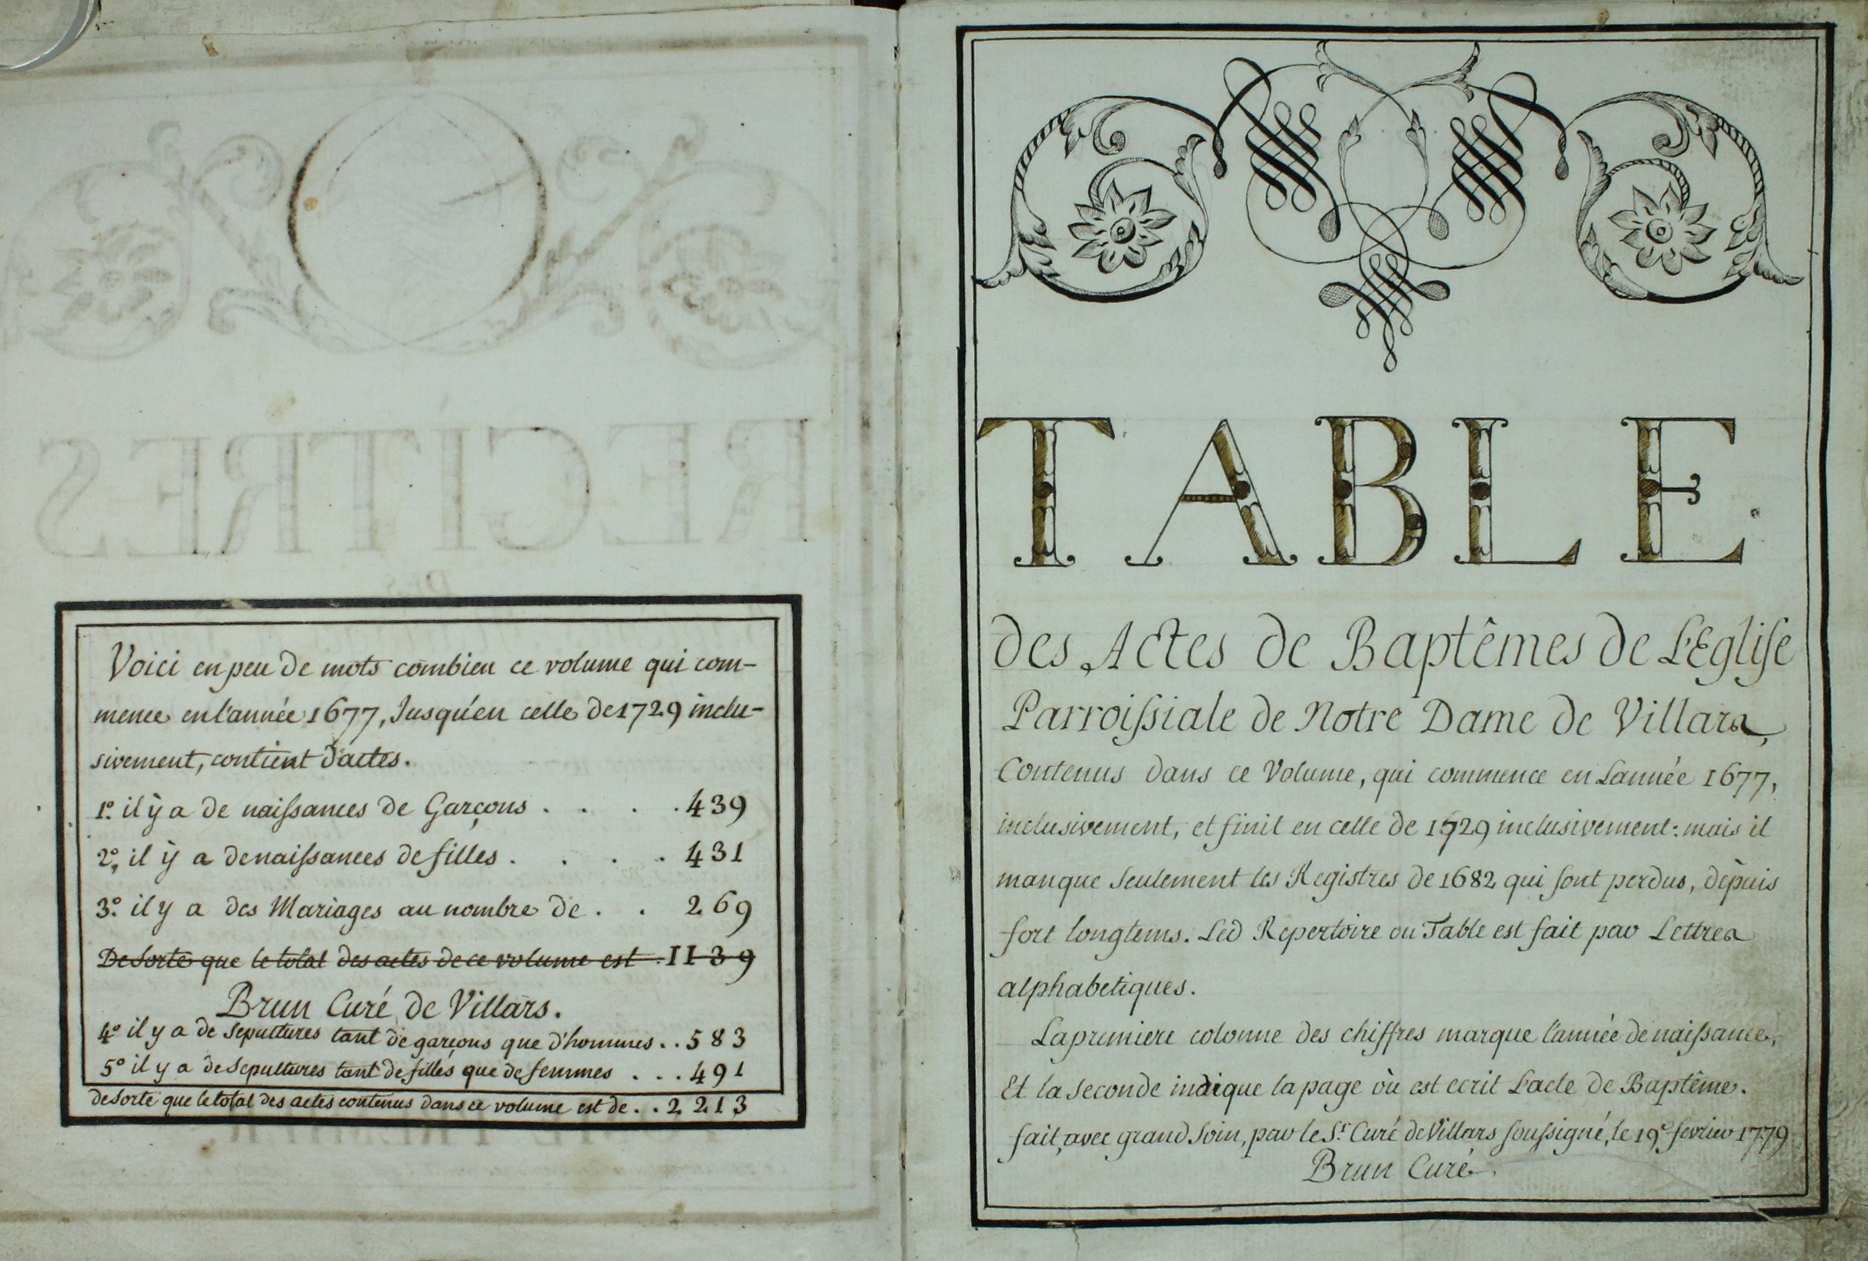 Voici en peu de mots combien ce volume qui com-
mence en l'année 1677, Jusqu'en celle de 1729 inclu-
sivement, contient d'actes.
1º. il ÿ a de naissances de Garçons . . . . 439
2º, il ÿ a de naissances de filles . . . . 431
3º. il y a des Mariages au nombre de . . 269
De Sorte que le total des actes de ce volume est . 1139
Brun Curé de Villars.
4º il y a de Sepultures tant de garçons que d'hommes . . 583
5º il y a de Sepultures tant de filles que de femmes . . . 491
de Sorte que le total des actes contenus dans ce volume est de . . 2213
TABLE.
des Actes de Baptêmes de L'Eglise
Parroissiale de Notre Dame de Villars,
Contenus dans ce Volume, qui commence en L'année 1677,
inclusivement, et finit en celle de 1729 inclusivement: mais il
manque seulement les Registres de 1682 qui sont perdus, dèpuis
fort longtems. Led Repertoire ou Table est fait par Lettres
alphabetiques.
La premiere colonne des chiffres marque l'année de naissance,
Et la seconde indique la page où est ecrit L'acte de Baptême.
fait, avec grand Soin, par le Sr. Curé de Villars soussigné, le 19e fevrier 1779
Brun Curé.